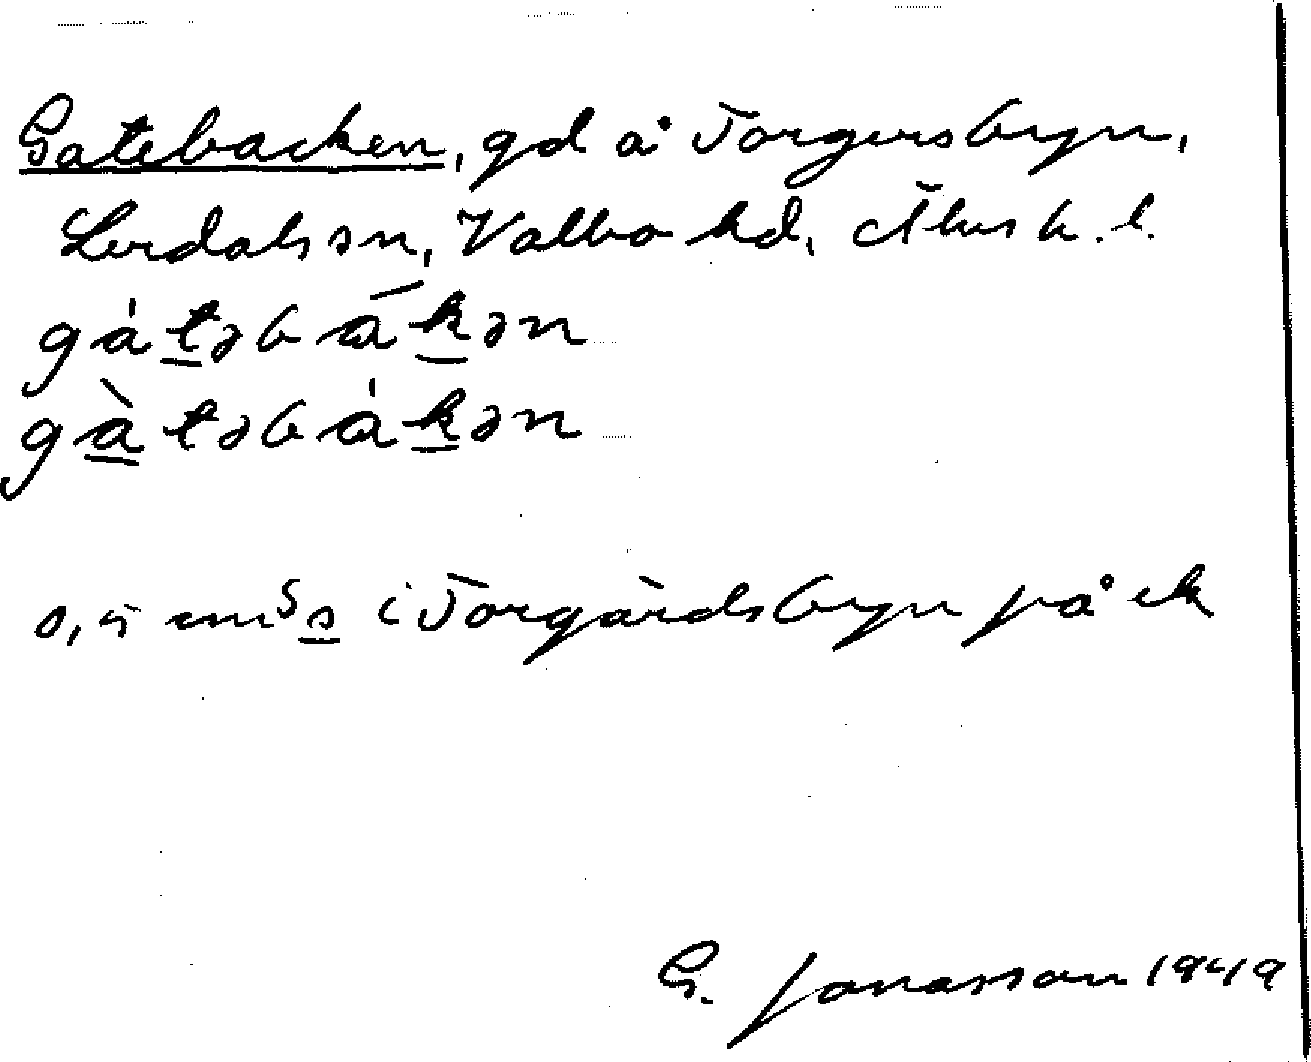 Gatebacken, gd å Torgersbyn,
Lerdals sn, Valbo hd, Älvsb. l.
gátəbákən
gàtəbákən
0,5 cm S s i Torgärdsbyn på ek
G. Jonasson 1949